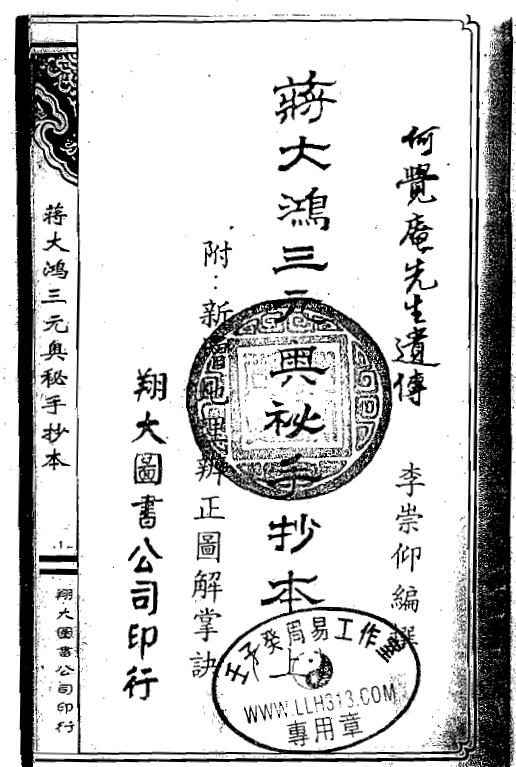 何覺庵先生遺傳
李崇仰編撰
蔣大鴻三元奧秘手抄本
附：新增地理辨正圖解掌訣
翔大圖書公司印行
蔣大鴻三元奧秘手抄本
-1-
翔大圖書公司印行
壬子癸周易工作室
WWW.LLH313.COM
專用章